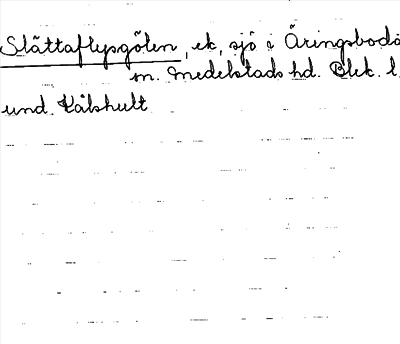 Slättaflysgölen, ek, sjö i Äringsbodå
sn. Medelstads hd. Blek. l.
und. Kålshult